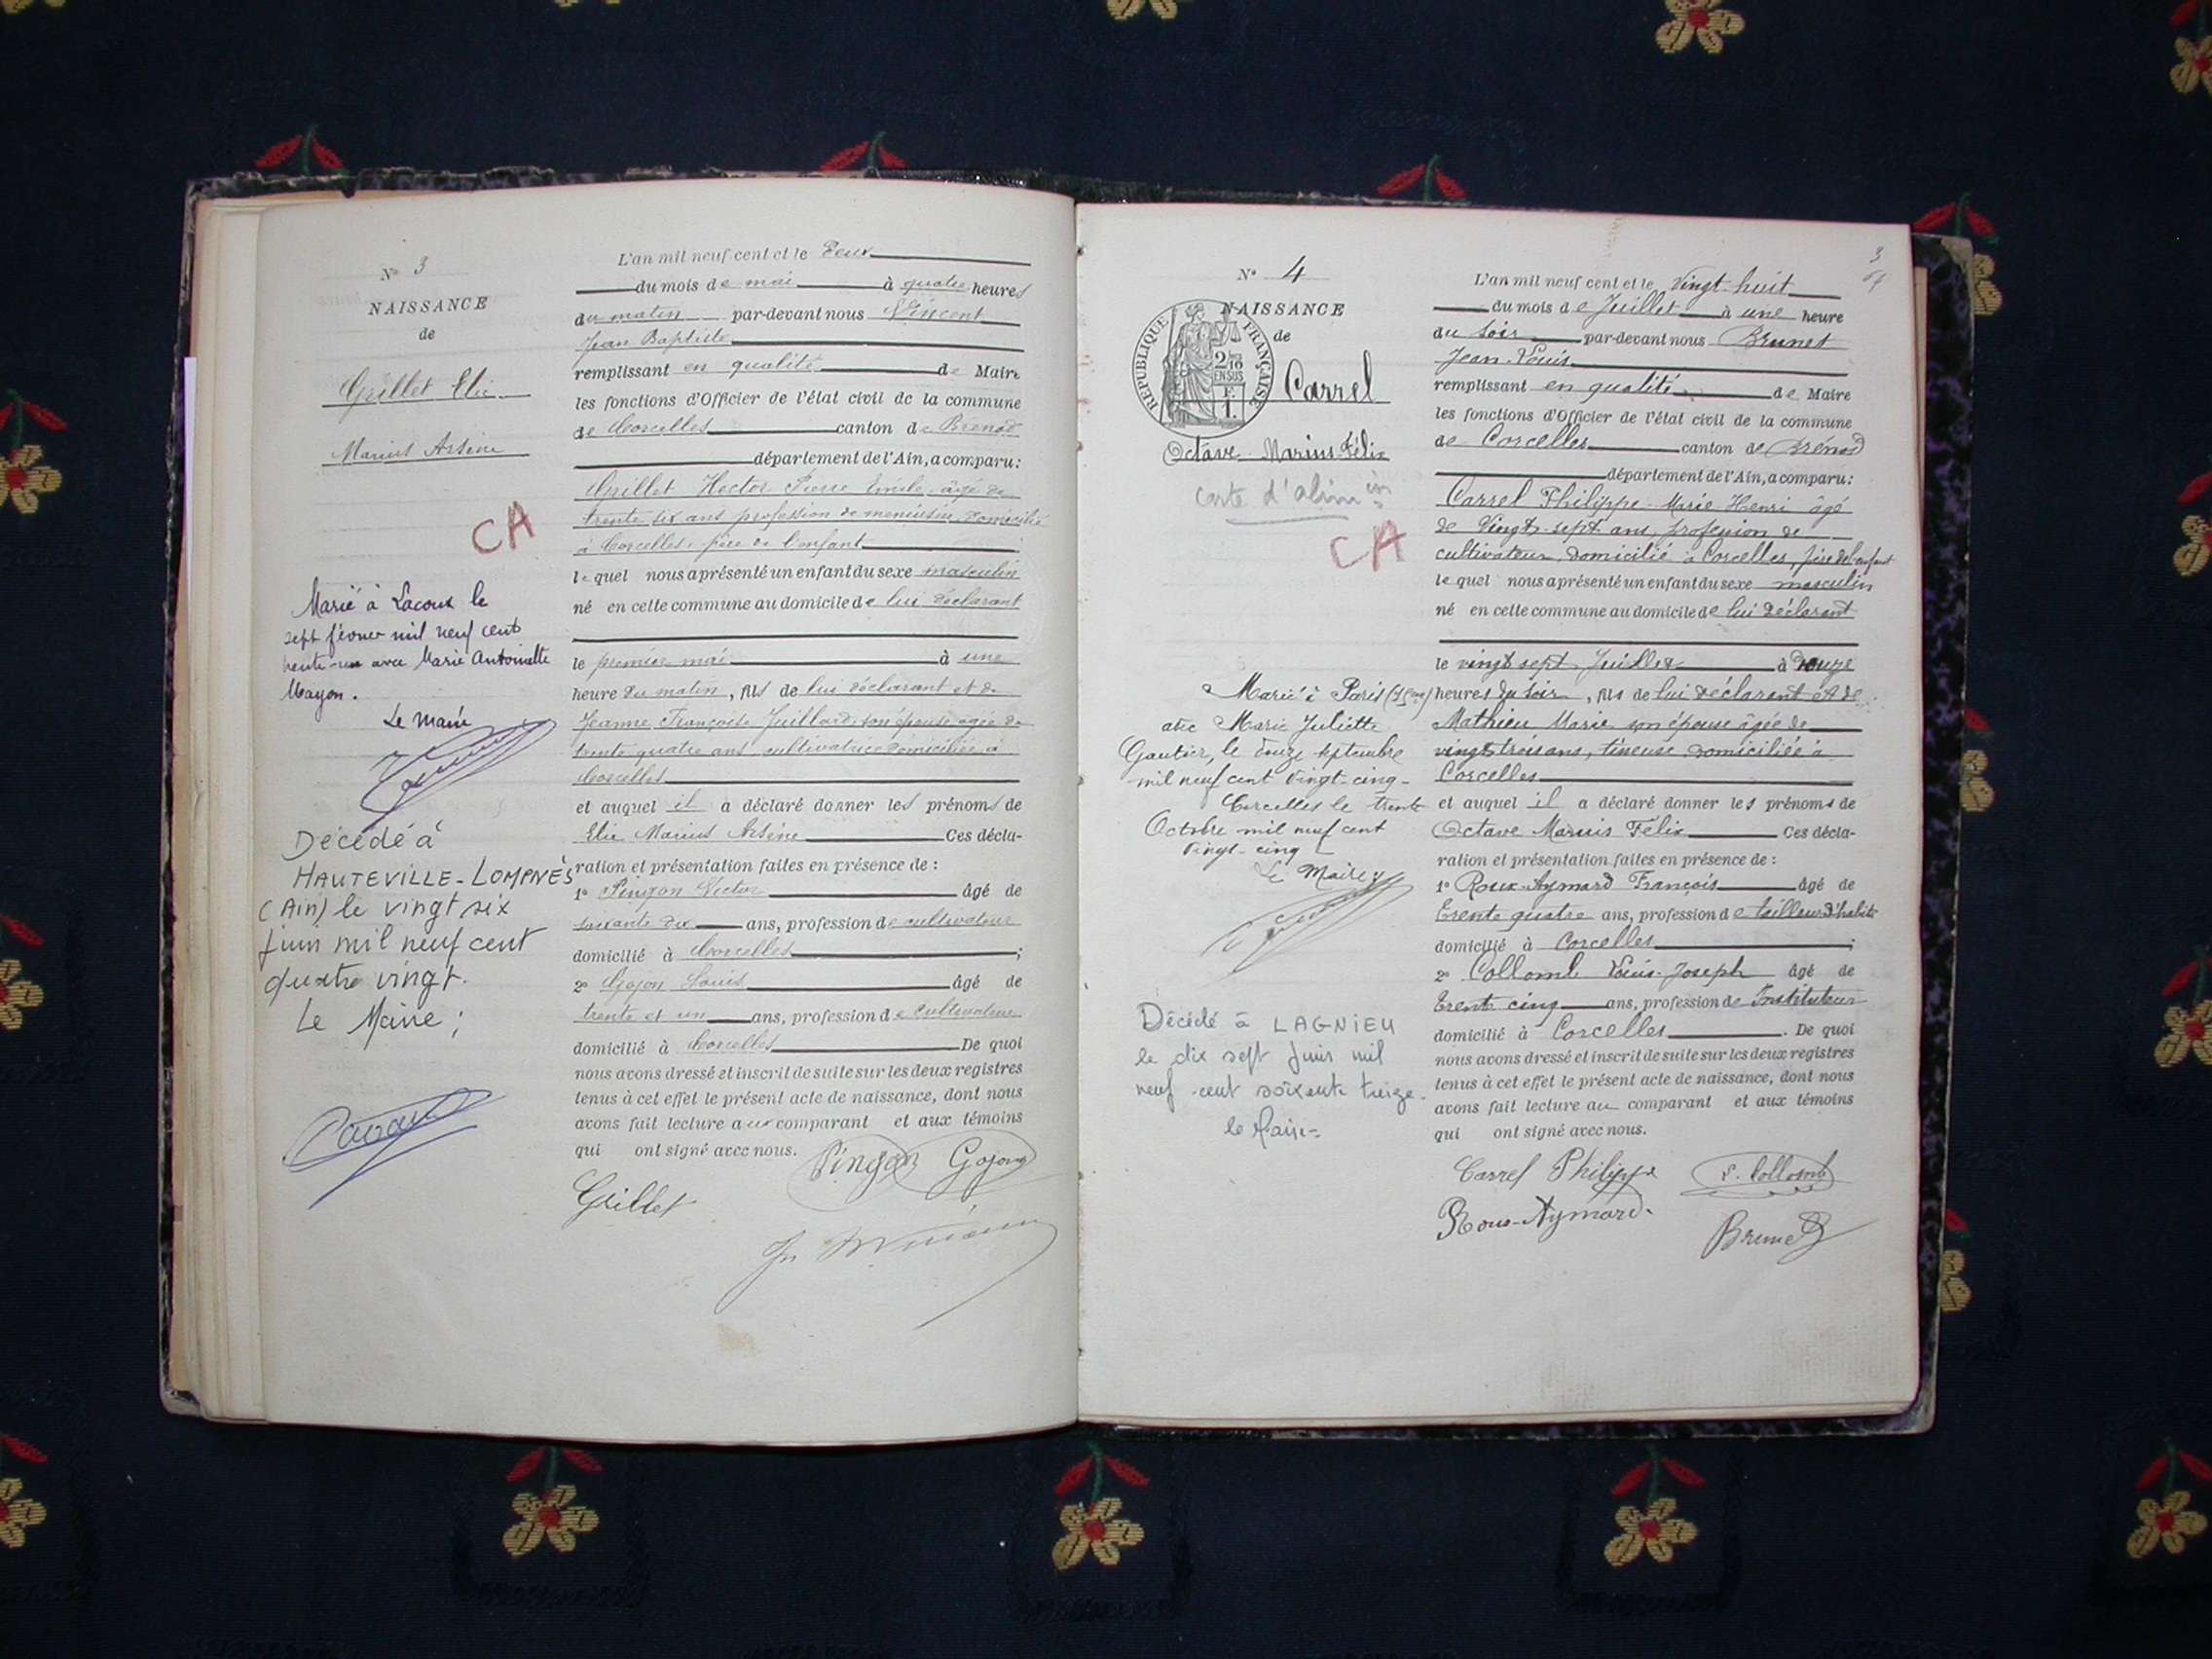 N° 3
NAISSANCE
de
Grillet Elie
Marius Arsène
CA
Marié à Lacoux le
sept février mil neuf cent
trente-un avec Marie Antoinette
Mayon.
Le maire
Décédé à
HAUTEVILLE-LOMPNÈS
(Ain) le vingt six
juin mil neuf cent
quatre vingt.
Le Maire ;
L'an mil neuf cent et le deux
du mois de mai à quatre heures
du matin par-devant nous Vincent
Jean Baptiste
remplissant en qualité de Maire
les fonctions d'Officier de l'état civil de la commune
de Corcelles canton de Brenod
département de l'Ain, a comparu :
Grillet Hector Pierre Emile âgé de
trente six ans profession de menuisier domicilié
à Corcelles, père de l'enfant
lequel nous a présenté un enfant du sexe masculin
né en cette commune au domicile de lui déclarant
le premier mai à une
heure du matin, fils de lui déclarant et de
Jeanne Françoise Juillard son épouse âgée de
trente quatre ans cultivatrice domiciliée à
Corcelles
et auquel il a déclaré donner les prénoms de
Elie Marius Arsène Ces décla-
ration et présentation faites en présence de :
1° Pingon Victor âgé de
soixante dix ans, profession de cultivateur
domicilié à Corcelles ;
2° Gojon Louis âgé de
trente et un ans, profession de cultivateur
domicilié à Corcelles De quoi
nous avons dressé et inscrit de suite sur les deux registres
tenus à cet effet le présent acte de naissance, dont nous
avons fait lecture aux comparant et aux témoins
qui ont signé avec nous. Pingon Gojon
Grillet
3
N° 4
NAISSANCE
de
RÉPUBLIQUE FRANÇAISE
2/10
EN SUS
F.
1.
Carrel
Octave Marius Félix
carte d'alim in
CA
Marié à Paris (15eme)
avec Marie Juliette
Gautier, le douze septembre
mil neuf cent vingt-cinq-
Corcelles le trente
Octobre mil neuf cent
vingt-cinq
Le Maire
Décédé à LAGNIEU
le dix sept juin mil
neuf cent soixante treize.
le Maire
L'an mil neuf cent et le vingt-huit
du mois de Juillet à une heure
du soir par-devant nous Brunet
Jean-Louis
remplissant en qualité de Maire
les fonctions d'Officier de l'état civil de la commune
de Corcelles canton de Brénod
département de l'Ain, a comparu :
Carrel Philippe-Marie Henri âgé
de vingt-sept ans, profession de
cultivateur domicilié à Corcelles, père de l'enfant
lequel nous a présenté un enfant du sexe masculin
né en cette commune au domicile de lui déclarant
le vingt sept Juillet à douze
heures du soir, fils de lui déclarant et de
Mathieu Marie son épouse âgée de
vingt trois ans, tineuse domiciliée à
Corcelles
et auquel il a déclaré donner les prénoms de
Octave Marius Félix Ces décla-
ration et présentation faites en présence de :
1° Roux-Aymard François âgé de
trente quatre ans, profession de tailleur d'habits
domicilié à Corcelles ;
2° Collomb Louis-Joseph âgé de
trente cinq ans, profession de Instituteur
domicilié à Corcelles . De quoi
nous avons dressé et inscrit de suite sur les deux registres
tenus à cet effet le présent acte de naissance, dont nous
avons fait lecture au comparant et aux témoins
qui ont signé avec nous.
Carrel Philippe L. Collomb
Roux-Aymard. Brunet